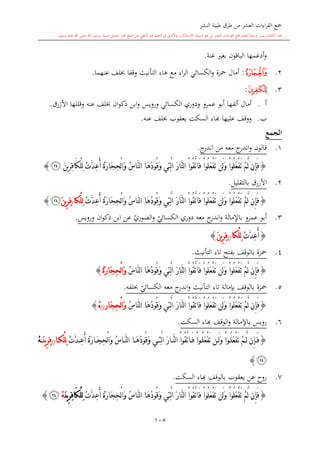 جمع القراءات العشر من طرق طيبة النشر
وأدغمها الباقون بغير غنة.
٢. وَٱلۡحِجَارَةُ: أمال حمزة والكسائي الراء مع هاء التأنيث وقفا بخلف عنهما.
٣. لِلۡكَٰفِرِينَ:
أ. أمال ألفها أبو عمرو ودوري الكسائي ورويس وابن ذكوان بخلف عنه وقللها الأزرق.
ب. ووقف عليها بهاء السكت يعقوب بخلف عنه.
الجمع
١. قالون واندرج معه من اندرج.
﴿ فَإِن لَّمۡ تَفۡعَلُواْ وَلَن تَفۡعَلُواْ فَٱتَّقُواْ ٱلنَّارَ ٱلَّتِي وَقُودُهَا ٱلنَّاسُ وَٱلۡحِجَارَةُ أُعِدَّتۡ لِلۡكَٰفِرِينَ ٢٤ ﴾
٢. الأزرق بالتقليل.
﴿ فَإِن لَّمۡ تَفۡعَلُواْ وَلَن تَفۡعَلُواْ فَٱتَّقُواْ ٱلنَّارَ ٱلَّتِي وَقُودُهَا ٱلنَّاسُ وَٱلۡحِجَارَةُ أُعِدَّتۡ لِلۡكَٰفِرِينَ ٢٤ ﴾
٣. أبو عمرو بالإمالة واندرج معه دوري الكسائيّ والصوريّ عن ابن ذكوان ورويس.
﴿ أُعِدَّتۡ لِلۡكَٰفِرِينَ ﴾
٤. حمزة بالوقف بفتح تاء التأنيث.
﴿ فَإِن لَّمۡ تَفۡعَلُواْ وَلَن تَفۡعَلُواْ فَٱتَّقُواْ ٱلنَّارَ ٱلَّتِي وَقُودُهَا ٱلنَّاسُ وَٱلۡحِجَارَةُ ﴾
٥. حمزة بالوقف بإمالة تاء التأنيث واندرج معه الكسائيّ بخلفه.
﴿ فَإِن لَّمۡ تَفۡعَلُواْ وَلَن تَفۡعَلُواْ فَٱتَّقُواْ ٱلنَّارَ ٱلَّتِي وَقُودُهَا ٱلنَّاسُ وَٱلۡحِجَارَةُ ﴾
٦. رويس بالإمالة والوقف بهاء السكت.
﴿ فَإِن لَّمۡ تَفۡعَلُواْ وَلَن تَفۡعَلُواْ فَٱتَّقُواْ ٱلنَّارَ ٱلَّتِي وَقُودُهَا ٱلنَّاسُ وَٱلۡحِجَارَةُ أُعِدَّتۡ لِلۡكَٰفِرِينَهۡ
٢٤ ﴾
٧. روح عن يعقوب بالوقف بهاء السكت.
﴿ فَإِن لَّمۡ تَفۡعَلُواْ وَلَن تَفۡعَلُواْ فَٱتَّقُواْ ٱلنَّارَ ٱلَّتِي وَقُودُهَا ٱلنَّاسُ وَٱلۡحِجَارَةُ أُعِدَّتۡ لِلۡكَٰفِرِينَهۡ ٢٤ ﴾
١٠٥